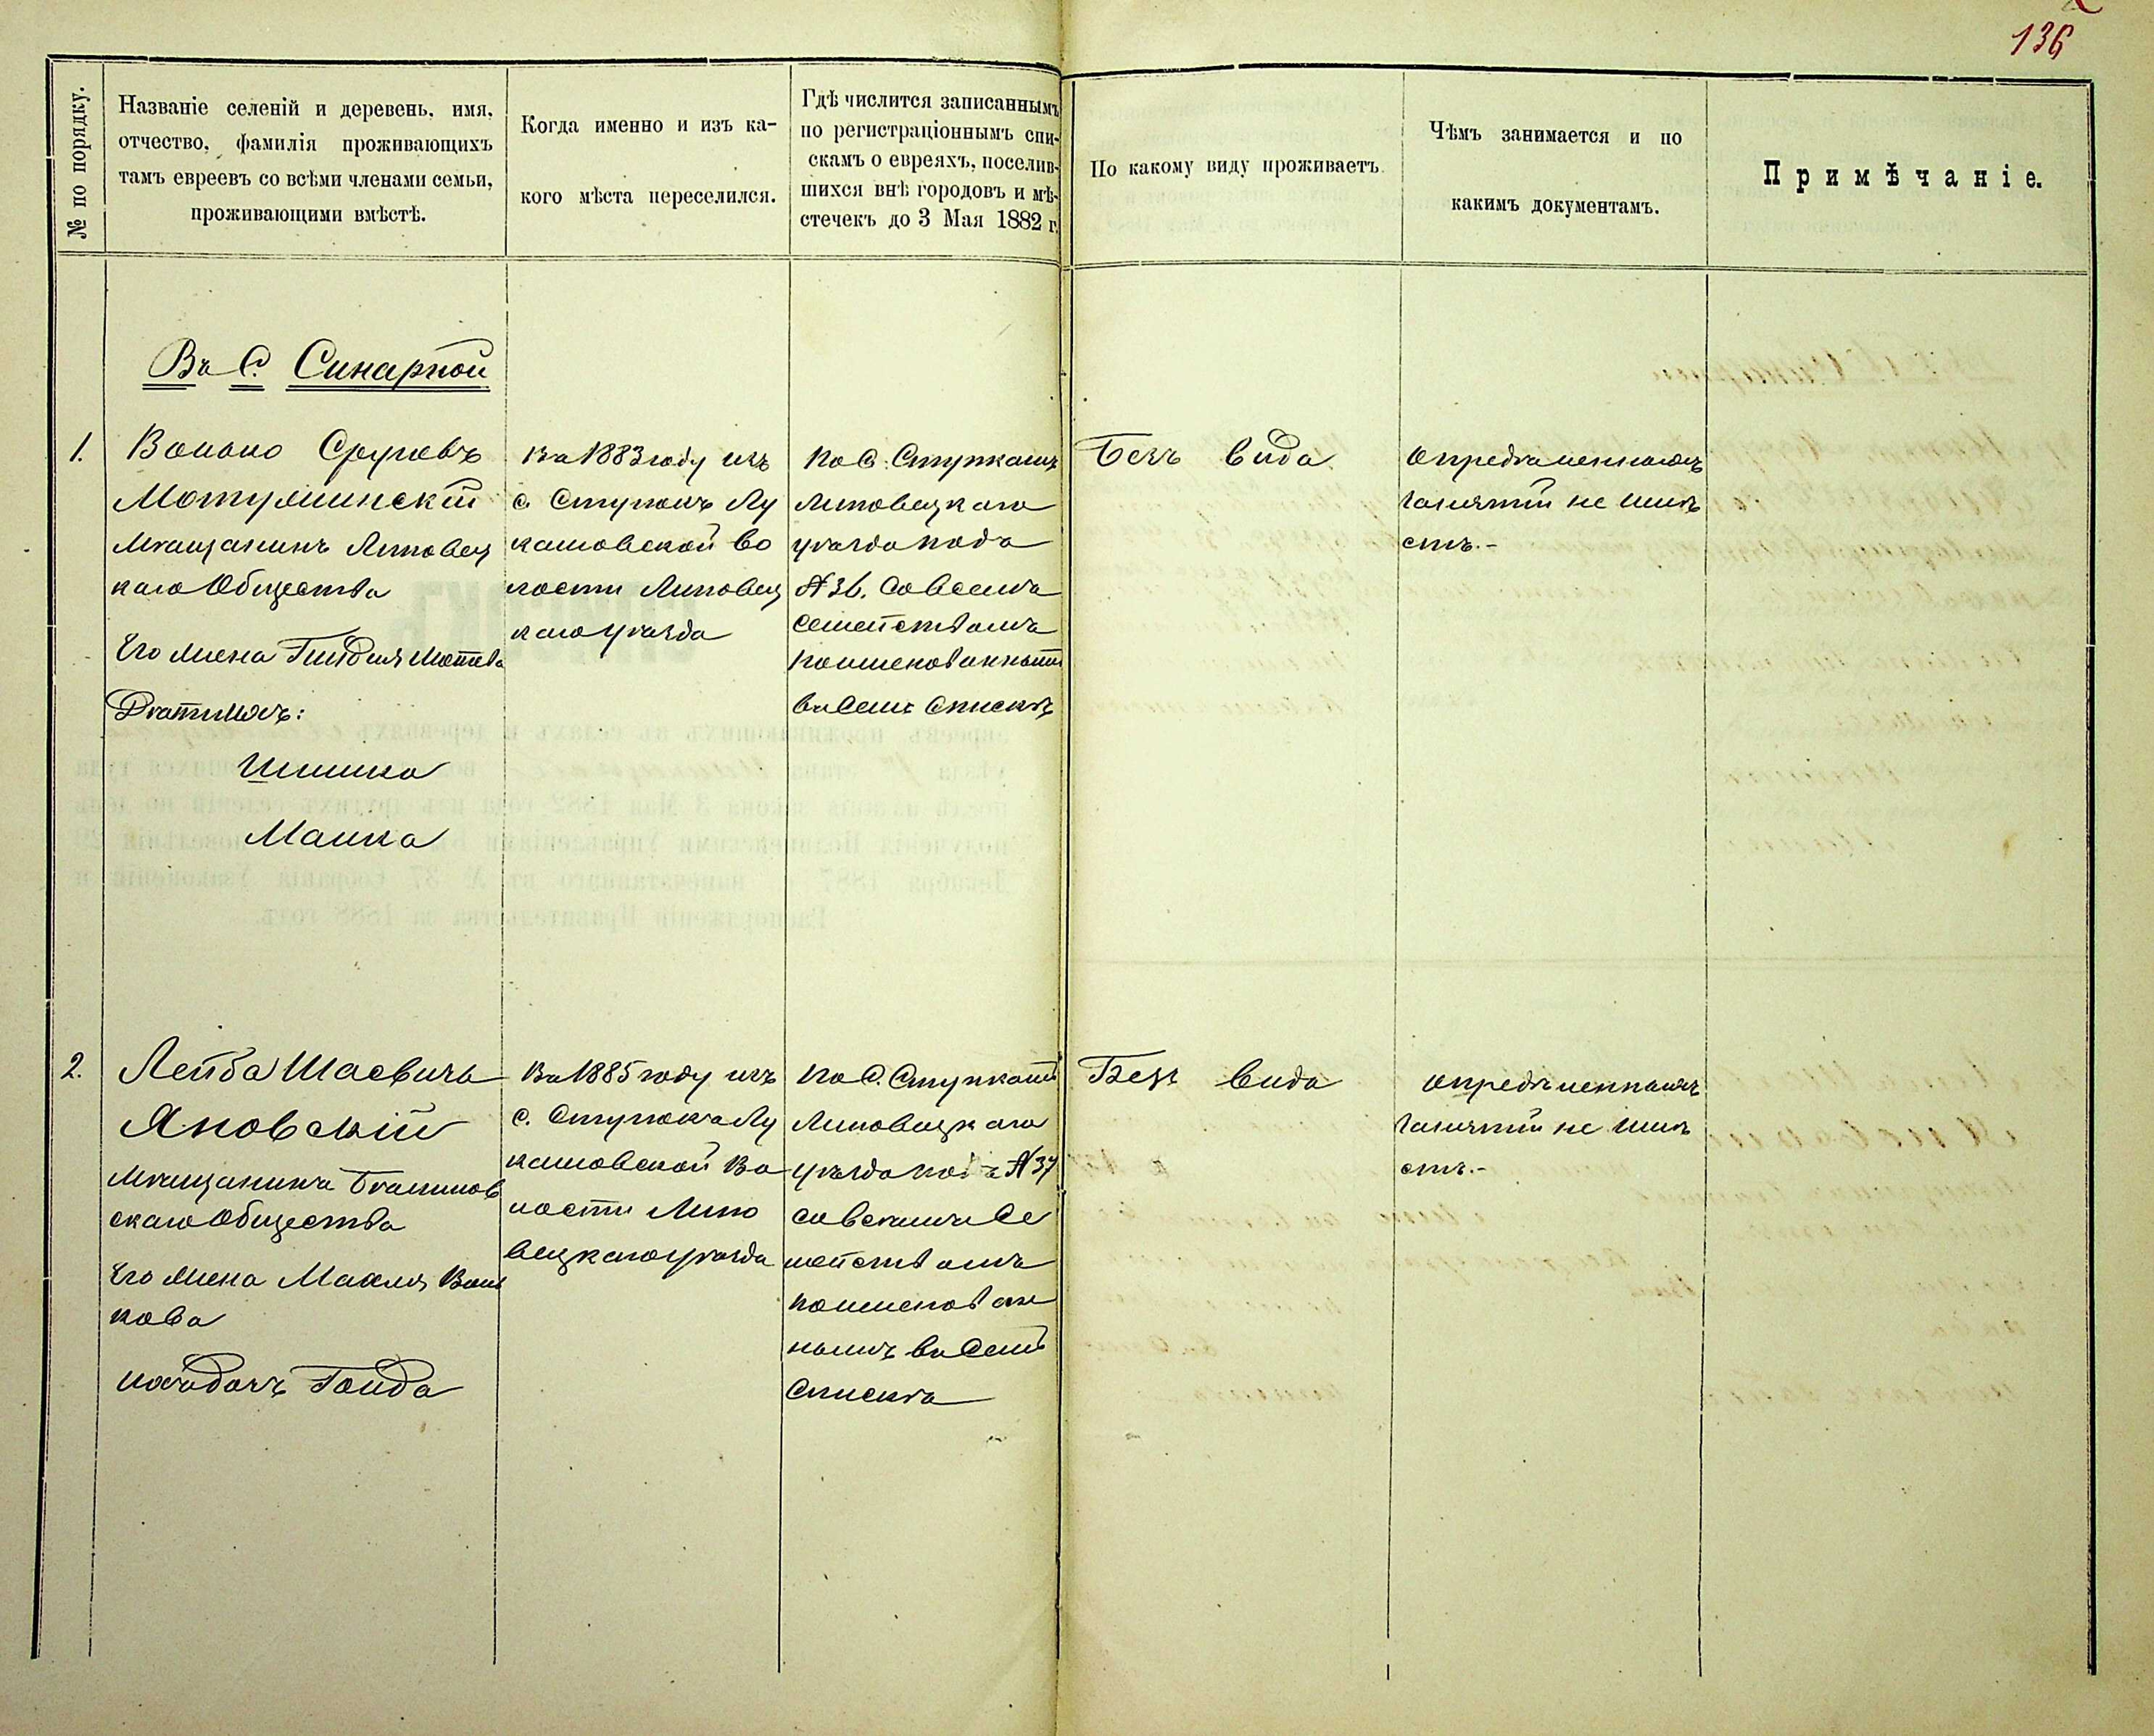 136
№ по порядку.
Названіе селеній и деревень, имя,
отчество, фамилія проживающихъ
тамъ евреевъ со всѣми членами семьи,
проживающими вмѣстѣ.
Когда именно и изъ ка-
кого мѣста переселился.
Гдѣ числится записаннымъ
по регистраціоннымъ спи-
скамъ о евреяхъ, поселив-
шихся внѣ городовъ и мѣ-
стечекъ до 3 Мая 1882 г.
По какому виду проживаетъ.
Чѣмъ занимается и по
какимъ документамъ.
Примѣчаніе.
Въ С. Синарной
1.
Волько Срулевъ
Мотулинскій
Мѣщанинъ Липовец
каго Общества
Его жена
Дѣти ихъ:
Шлима
Малка
Въ 1883 году изъ
с. Ступокъ Лу
кашовской во
лости Липовец
каго уѣзда
По С. Ступкамъ
Липовецкаго
уѣзда подъ
№ 36. Со всемъ
семействомъ
поименованнымъ
въ семъ Спискѣ
Безъ вида
Опредѣленныхъ
занятій не имѣ
етъ.-
2.
Лейба Шаевичъ
Яновскій
Мѣщанинъ
скаго Общества
Его жена Махля Воль
кова
Гольда
Въ 1885 году изъ
с. Ступокъ Лу
кашовской Во
лости Липо
вецкаго уѣзда
По С. Ступкамъ
Липовецкаго
уѣзда подъ № 37
со всемъ Се
мействомъ
поименован
нымъ въ Семъ
Спискѣ
Безъ вида
Опредѣленныхъ
занятій не имѣ
етъ.-